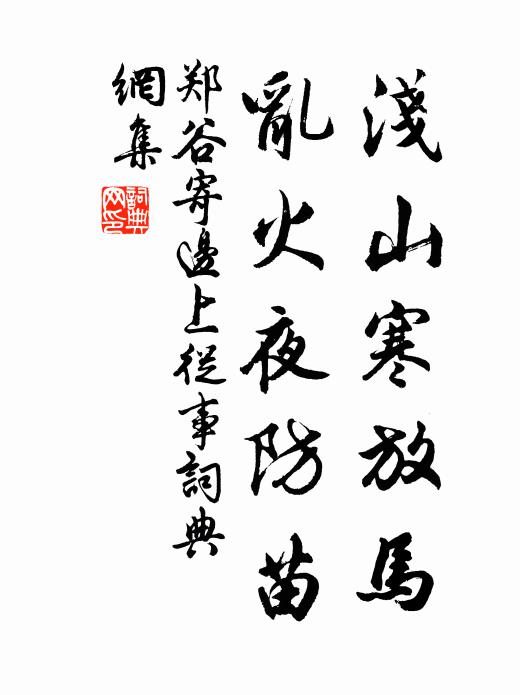 淺山寒放馬
亂火夜防苗
郑谷寄邊上從事詞典
網集
詞典
网印